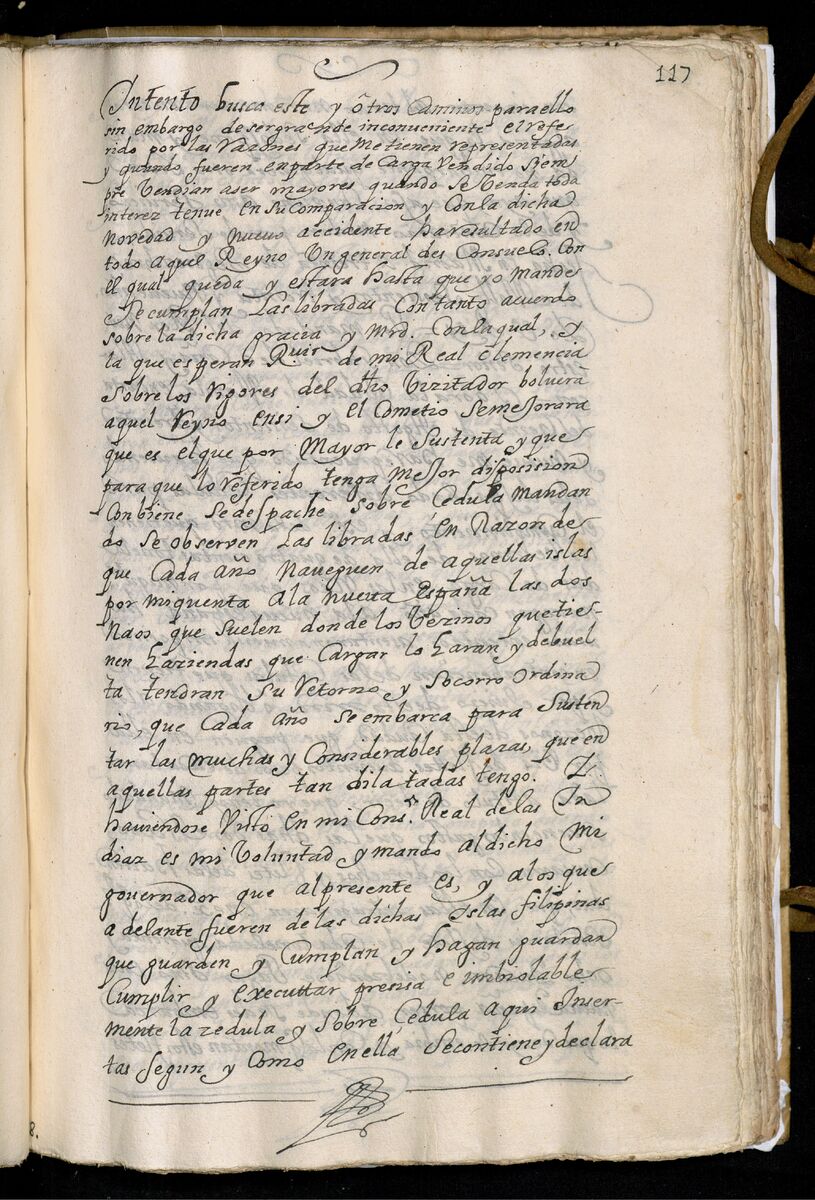 117
Intento busca este y ôtros Caminos paraello
sin embargo de ser grande inconueniente el refe
rido por las razones que me tienen representadas
y quando fueren en parte de Carga Vendido Siem
pre Vendian aser mayores quando se Venda toda
interez tenue en su Comparacion y Con la dicha
novedad y nueuo accidente ha resultado en
todo aquel Reyno Un general des Consuelo. Con
el qual queda y estara hasta que yo mande
se cumplan Las libradas Con tanto acuerdo
sobre la dicha gracia y Mrd. Con la qual, y
la que esperan de mi Real clemencia
Sobre los rigores del dho Vizitador boluerâ
aquel reyno ensi y el Cometio Se mejorara
que es el que por Mayor le Sustenta y que
para que lo referido tenga mejor disposision
Conbiene se despachè sobre Cedula mandan
do se observen Las libradas en Razon de
que Cada año naueguen de aquellas islas
por mi quenta a la nueua España las dos
Naos que suelen donde los Vezinos que tie-
nen haziendas que Cargar lo haran y de buel
ta tendran su retorno y Socorro ordina
rio, que Cada año se embarca para Susten
tar las muchas y Considerables plazas, que en
aquellas partes tan dilatadas tengo. Z.
hauiendose Visto en mi Consº. Real de las In
diaz es mi Voluntad y mando al dicho Mi
governador que al presente es, y a los que
adelante fueren de las dichas Islas filipinas
que guarden y Cumplan y hagan guardar
Cumplir y executtar presisa e imbiolable
mente la zedula y Sobre Cedula aqui Inser-
tas segun y Como en ella Se contiene y declara
8.